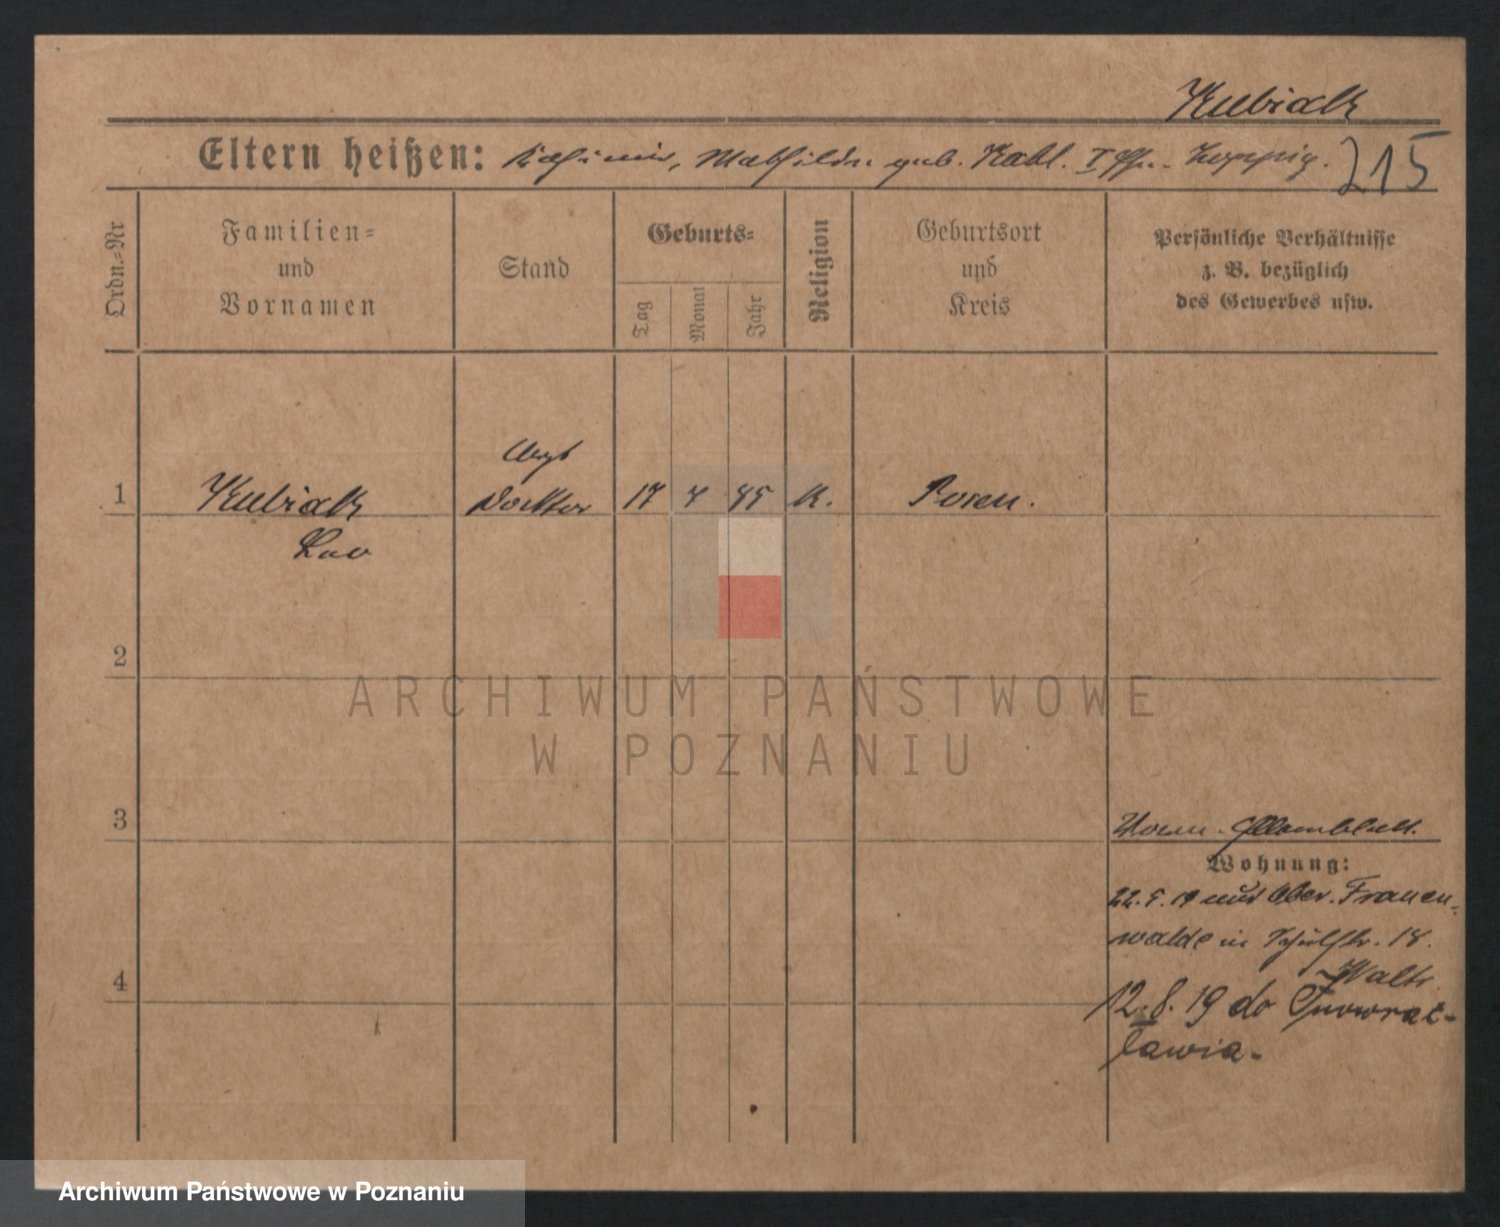 Kubiak
Eltern heißen: Kasimir, Mathilde geb. Kabl.
215
Ordn.-Nr
Familien-
und
Vornamen
Stand
Geburts-
Tag
Monat
Jahr
Religion
Geburtsort
und
Kreis
Persönliche Verhältnisse
z. B. bezüglich
des Gewerbes usw.
Arzt
1 Kubiak Doktor 17 4 85 K. Posen.
Leo
2
ARCHIWUM PAŃSTWOWE
W POZNANIU
3
Wohnung:
22. 5. 19 aus Ober. Frauen-
walde in Schulstr. 18.
4
12. 8. 19 do Inowroc-
ławia.
Archiwum Państwowe w Poznaniu